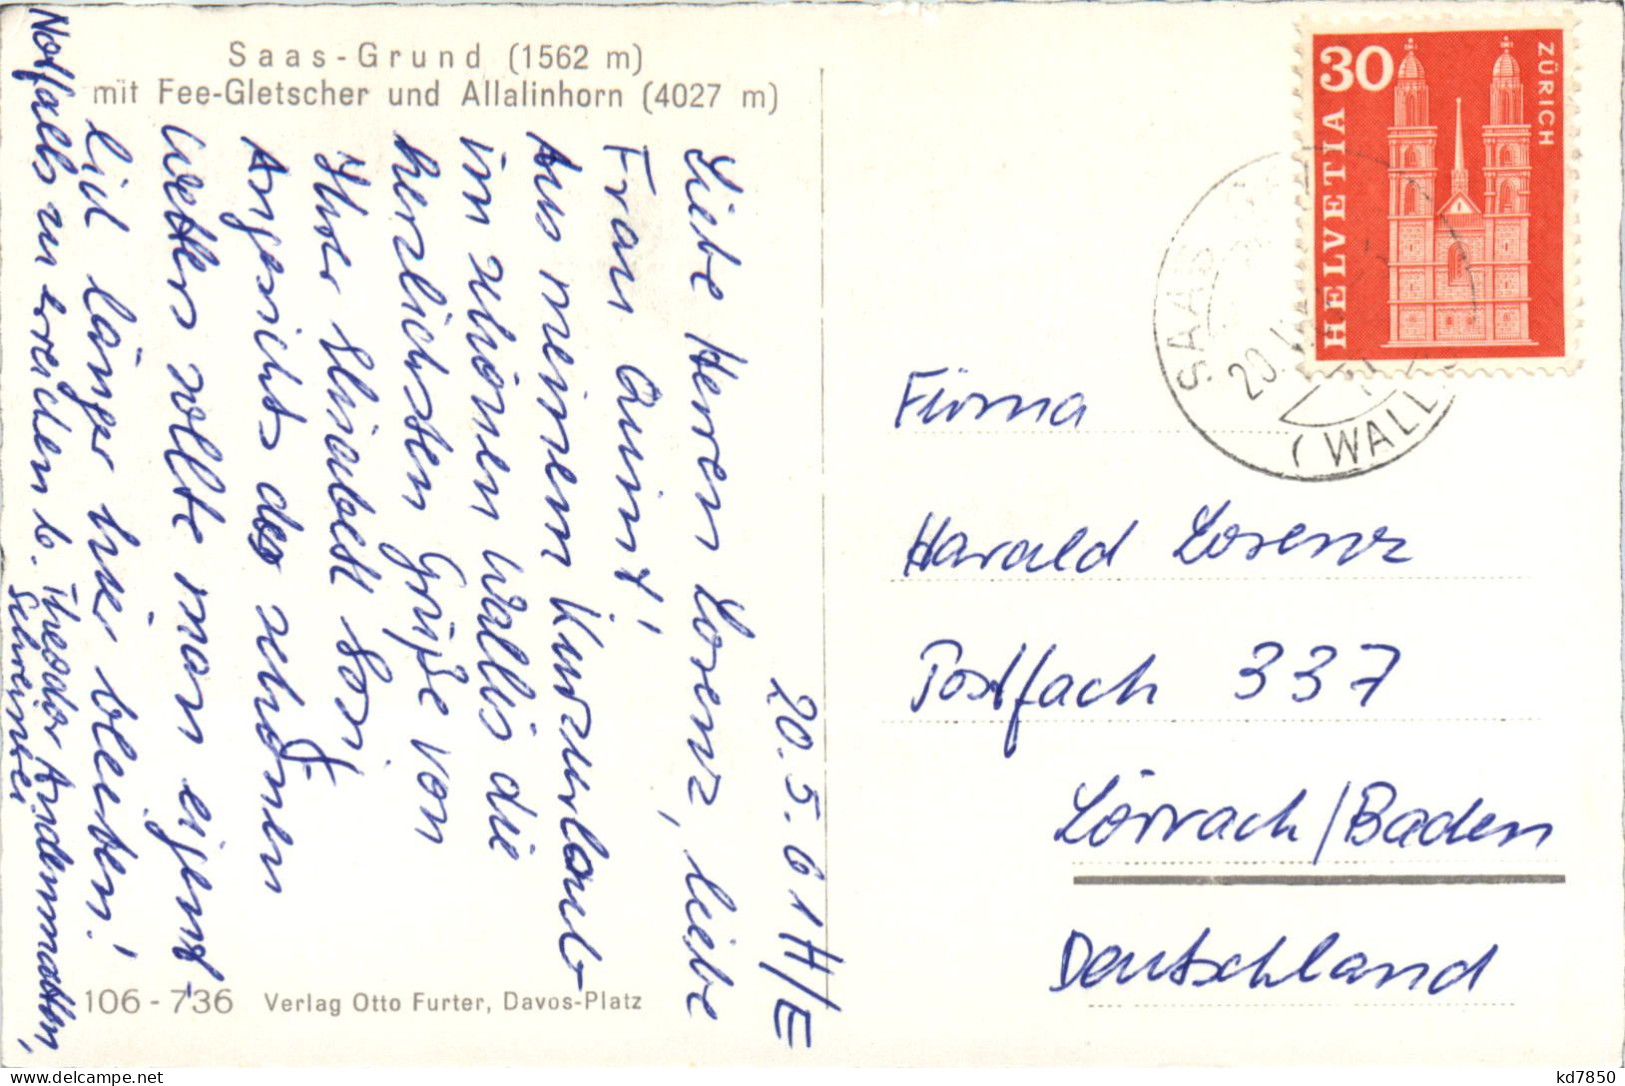 Saas-Grund (1562 m)
mit Fee-Gletscher und Allalinhorn (4027 m)
20.5.61 H/E
Liebe Herren Lorenz, liebe
Frau Quint!
Aus meinem Kurzurlaub
im schönen Wallis die
herzlichsten Grüße von
Ihrer
Angesichts des schönen
Wetters sollte man eigent-
lich länger hier bleiben!
Notfalls zu erreichen b. Theodor Andenmatten,
Schreinerei
106 - 736 Verlag Otto Furter, Davos-Platz
30
ZÜRICH
HELVETIA
SAAS
20.
(WALL
Firma
Harald Lorenz
Postfach 337
Lörrach/Baden
Deutschland
kd7850